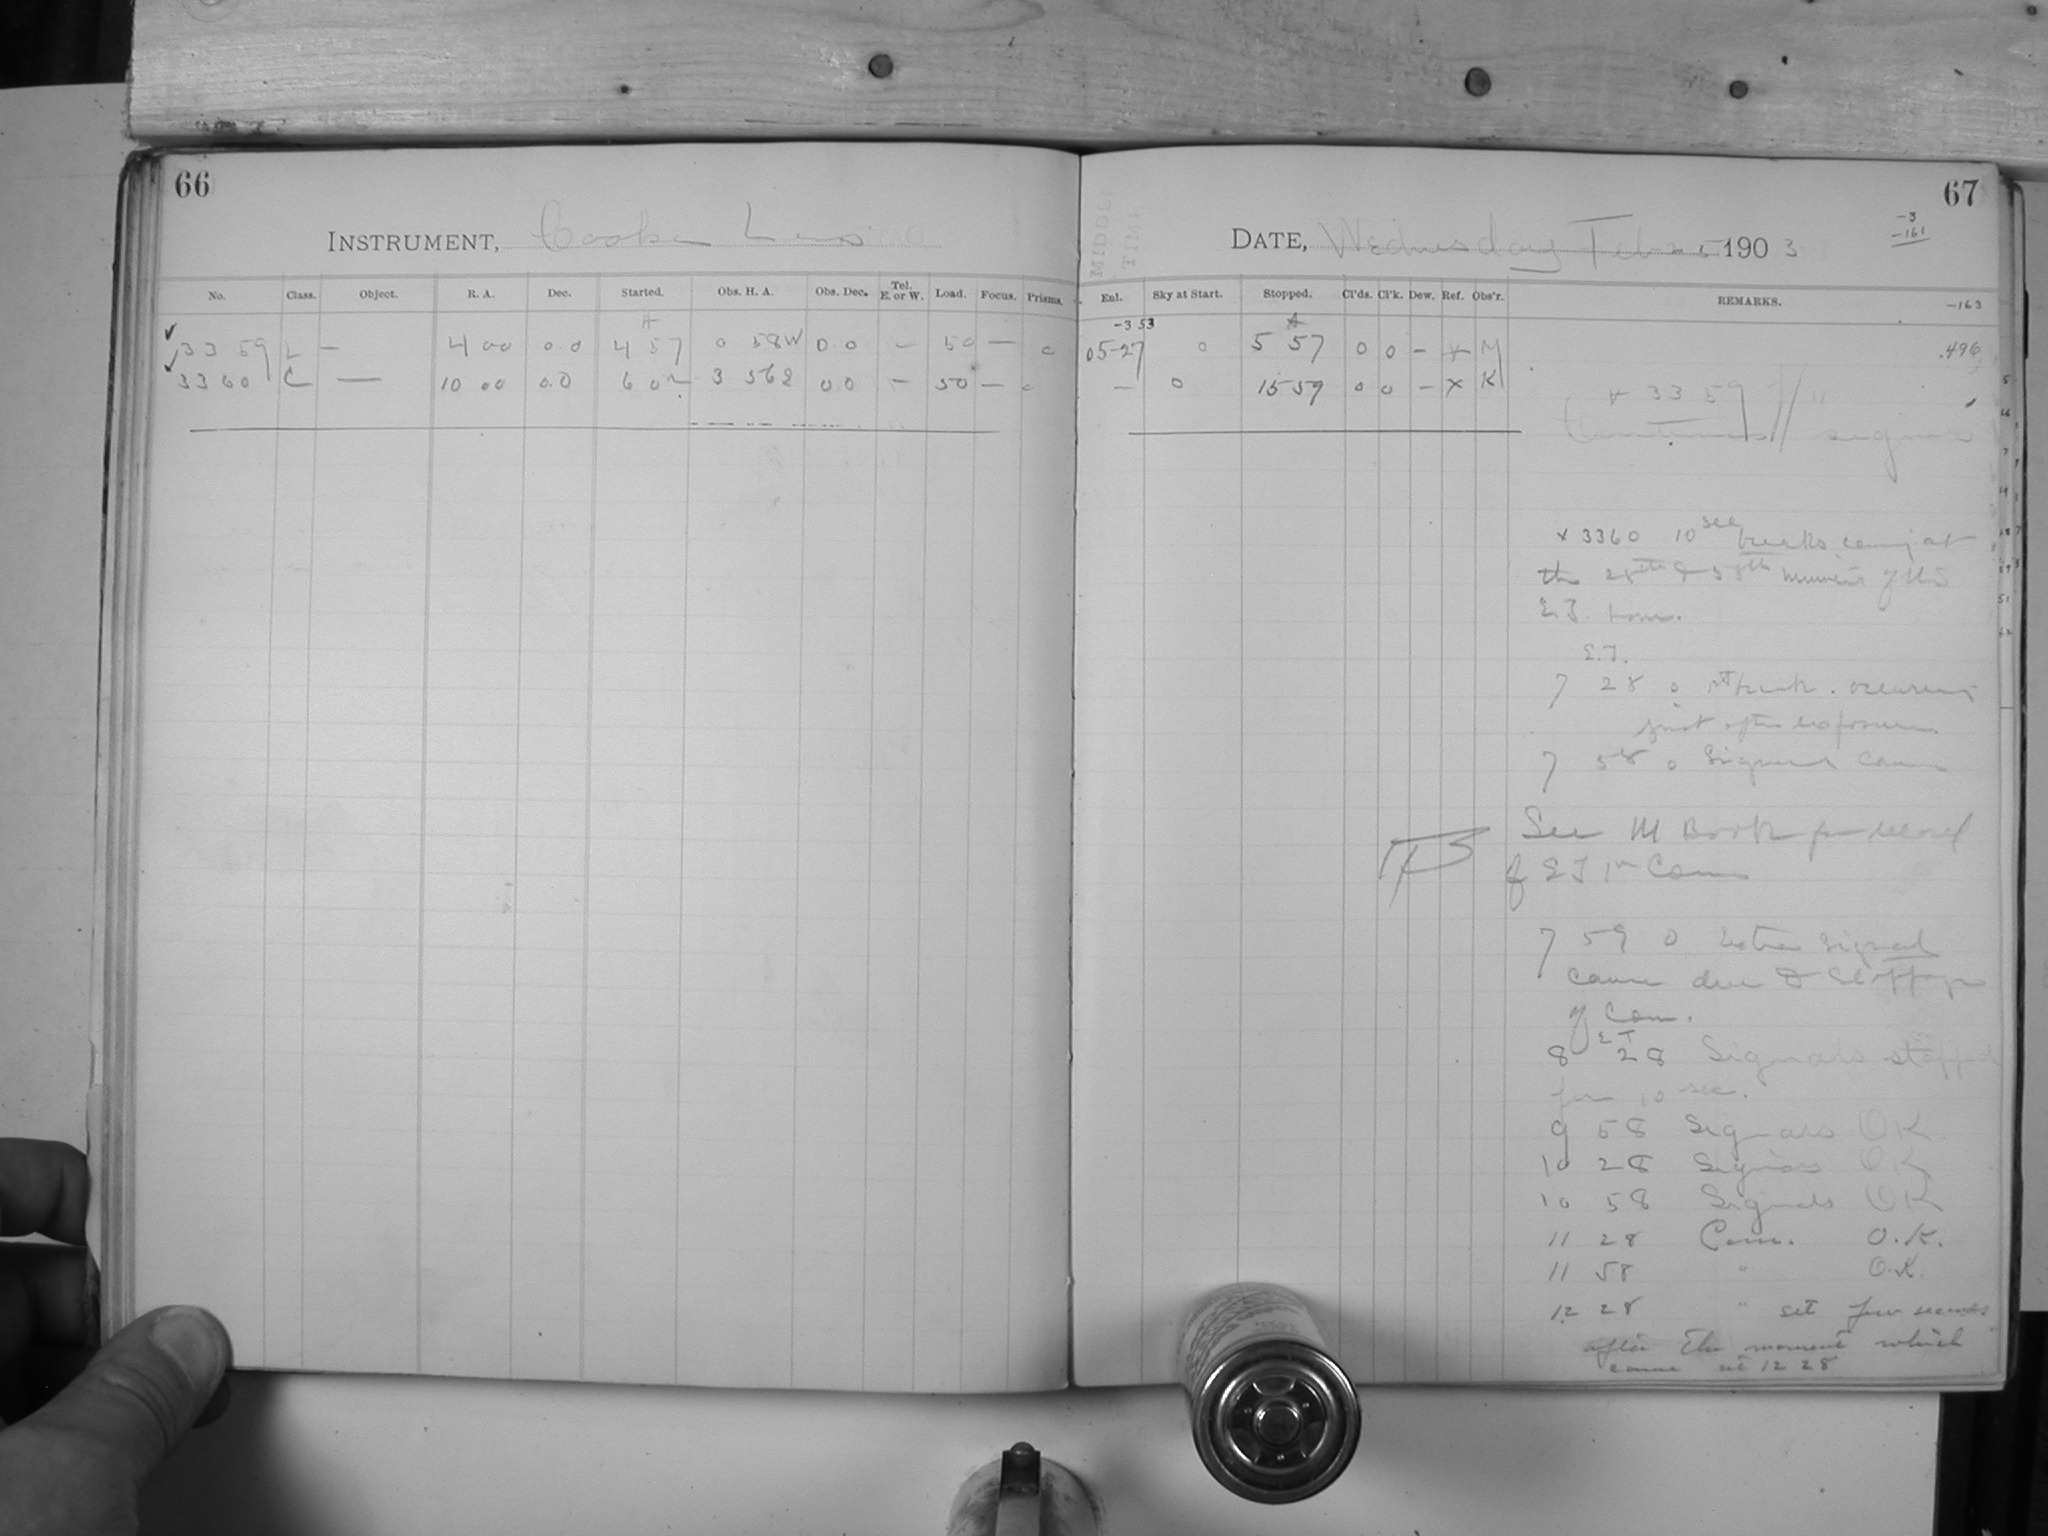 66
INSTRUMENT, Cooke Lens
No. Class. Object. R. A. Dec. Started. Obs. H. A. Obs. Dec. Tel. E. or W. Load. Focus. Prisms.
3359 L — 4 00 0.0 4 57 0 58W 0.0 — 50 — 0
3360 C — 10 00 0.0 6 02 3 56 0.0 — 50 — 0
67
-3
-161
DATE, Wednesday Feb 25 1903
Enl. Sky at Start. Stopped. Cl'ds. Cl'k. Dew. Ref. Obs'r. REMARKS. -163
-3 53
05-27 0 5 57 0 0 — x M .496
— 0 15 59 0 0 — x K
x 3359
signals
x 3360 10 sec breaks coming at
the 28th & 58th minutes of the
S.T. hour.
S.T.
7 28 0 1st break occurring
just after exposure
7 58 0 Signal came
See M Book for record
of S T in Com
7 59 0 Extra Signal
came due to stoppage
of Com.
S T
8 28 Signals stopped
for 10 sec.
9 58 Signals OK
10 28 Signals OK
10 58 Signals OK
11 28 Com. O.K.
11 58 " O.K.
12 28 " set few seconds
after the moment which
came at 12 28